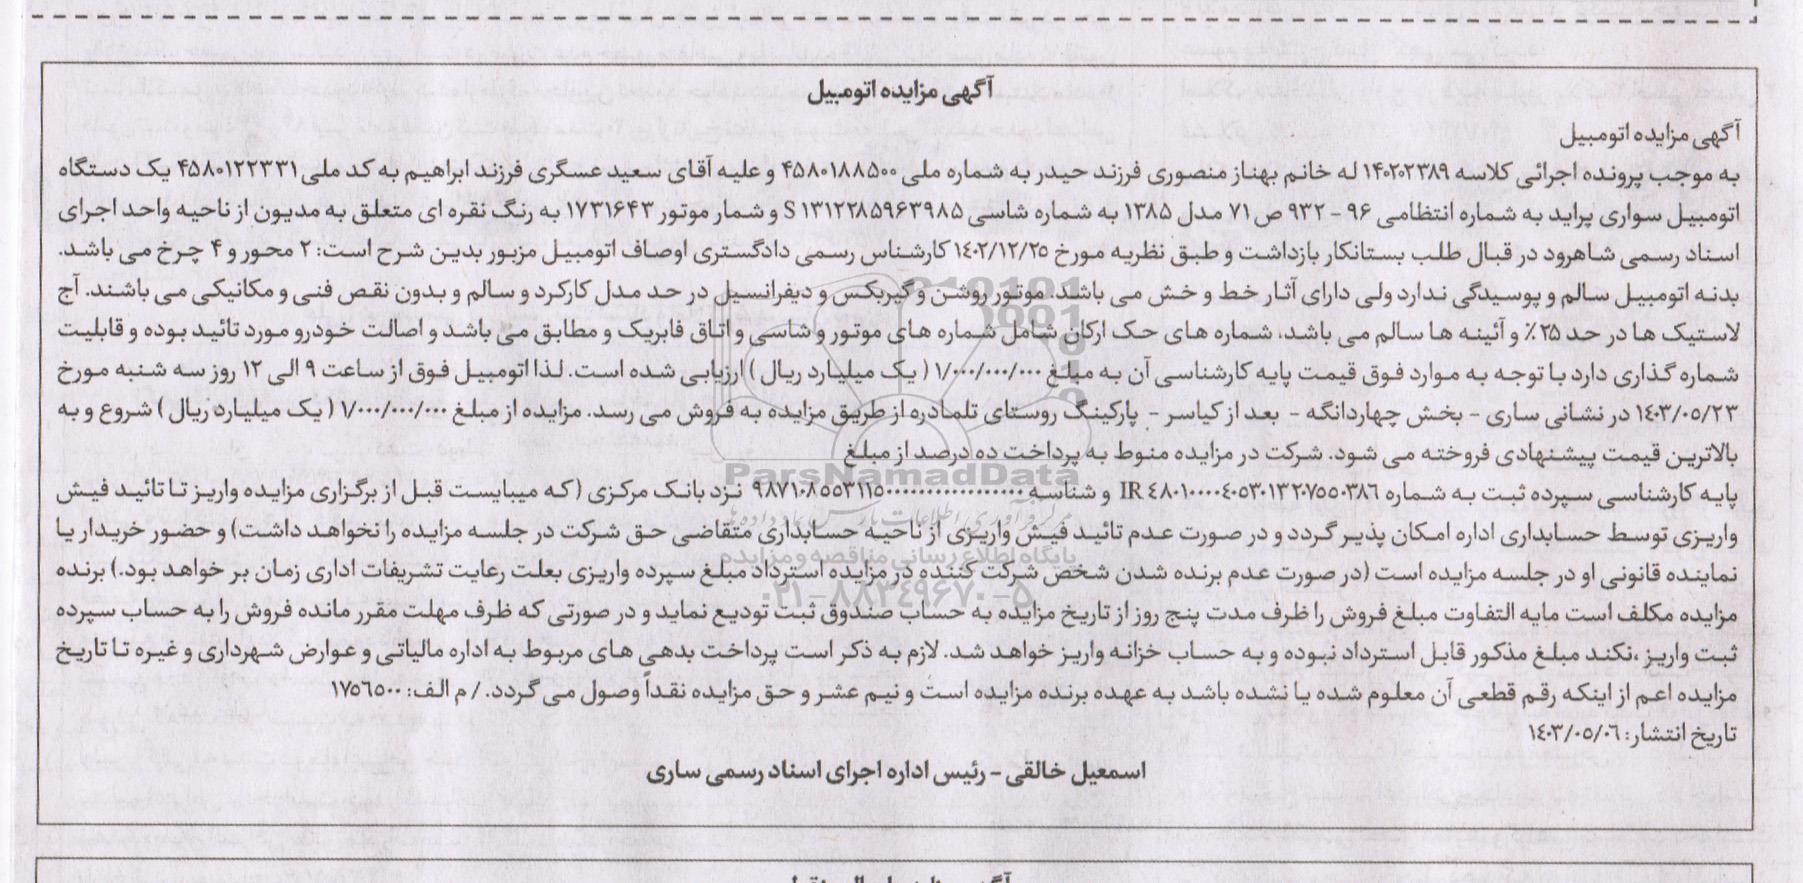 آگهی مزایده اتومبیل
آگهی مزایده اتومبیل
به موجب پرونده اجرائی کلاسه ۱۴۰۲۰۲۳۸۹ له خانم بهناز منصوری فرزند حیدر به شماره ملی ۴۵۸۰۱۸۸۵۰۰ و علیه آقای سعید عسگری فرزند ابراهیم به کد ملی ۴۵۸۰۱۲۲۳۳۱ یک دستگاه
اتومبیل سواری پراید به شماره انتظامی ۹۶ - ۹۳۲ ص ۷۱ مدل ۱۳۸۵ به شماره شاسی S ۱۳۱۲۲۸۵۹۶۳۹۸۵ و شمار موتور ۱۷۳۱۶۴۳ به رنگ نقره ای متعلق به مدیون از ناحیه واحد اجرای
اسناد رسمی شاهرود در قبال طلب بستانکار بازداشت و طبق نظریه مورخ ۱٤۰۲/۱۲/۲۵ کارشناس رسمی دادگستری اوصاف اتومبیل مزبور بدین شرح است: ۲ محور و ۴ چرخ می باشد.
بدنه اتومبیل سالم و پوسیدگی ندارد ولی دارای آثار خط و خش می باشد. موتور روشن و گیربکس و دیفرانسیل در حد مدل کارکرد و سالم و بدون نقص فنی و مکانیکی می باشند. آج
لاستیک ها در حد ۲۵٪ و آئینه ها سالم می باشد. شماره های حک ارکان شامل شماره های موتور و شاسی و اتاق فابریک و مطابق می باشد و اصالت خودرو مورد تائید بوده و قابلیت
شماره گذاری دارد با توجه به موارد فوق قیمت پایه کارشناسی آن به مبلغ ۱/۰۰۰/۰۰۰/۰۰۰ ( یک میلیارد ریال ) ارزیابی شده است. لذا اتومبیل فوق از ساعت ۹ الی ۱۲ روز سه شنبه مورخ
۱٤۰۳/۰۵/۲۳ در نشانی ساری - بخش چهاردانگه - بعد از کیاسر - پارکینگ روستای تلمادره از طریق مزایده به فروش می رسد. مزایده از مبلغ ۱/۰۰۰/۰۰۰/۰۰۰ ( یک میلیارد ریال ) شروع و به
بالاترین قیمت پیشنهادی فروخته می شود. شرکت در مزایده منوط به پرداخت ده درصد از مبلغ
پایه کارشناسی سپرده ثبت به شماره IR ٤۸۰۱۰۰۰۰٤۰۵۳۰۱۳۲۰۷۵۵۰۳۸٦ و شناسه نزد بانک مرکزی (که میبایست قبل از برگزاری مزایده واریز تا تائید فیش
واریزی توسط حسابداری اداره امکان پذیر گردد و در صورت عدم تائید فیش واریزی از ناحیه حسابداری متقاضی حق شرکت در جلسه مزایده را نخواهد داشت) و حضور خریدار یا
نماینده قانونی او در جلسه مزایده است (در صورت عدم برنده شدن شخص شرکت کننده در مزایده استرداد مبلغ سپرده واریزی بعلت رعایت تشریفات اداری زمان بر خواهد بود.) برنده
مزایده مکلف است مابه التفاوت مبلغ فروش را ظرف مدت پنج روز از تاریخ مزایده به حساب صندوق ثبت تودیع نماید و در صورتی که ظرف مهلت مقرر مانده فروش را به حساب سپرده
ثبت واریز ،نکند مبلغ مذکور قابل استرداد نبوده و به حساب خزانه واریز خواهد شد. لازم به ذکر است پرداخت بدهی های مربوط به اداره مالیاتی و عوارض شهرداری و غیره تا تاریخ
مزایده اعم از اینکه رقم قطعی آن معلوم شده یا نشده باشد به عهده برنده مزایده است و نیم عشر و حق مزایده نقداً وصول می گردد. / م الف: ۱۷۵٦۵۰۰
تاریخ انتشار: ۱٤۰۳/۰۵/۰٦
اسمعیل خالقی - رئیس اداره اجرای اسناد رسمی ساری
ParsNamadData
پایگاه اطلاع رسانی مناقصه و مزایده
۰۲۱-۸۸۳٤۹٦۷۰-۵